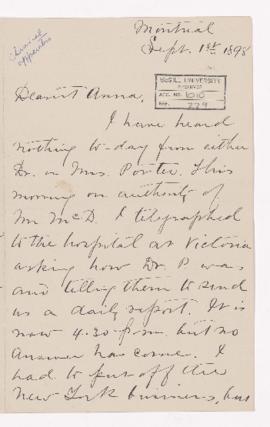 Montreal
Sept. 1st 1898
McGILL UNIVERSITY
ARCHIVES
ACC. NO. 1010
REF. 279
Dearest Anna,
I have heard
nothing to-day from either
Dr. or Mrs. Porter. This
morning on authority of
Mr McD. I telegraphed
to the hospital at Victoria
asking how Dr. P was
and telling them to send
us a daily report. It is
now 4.30 p.m. but no
answer has come. I
had to put off the
New York business, but